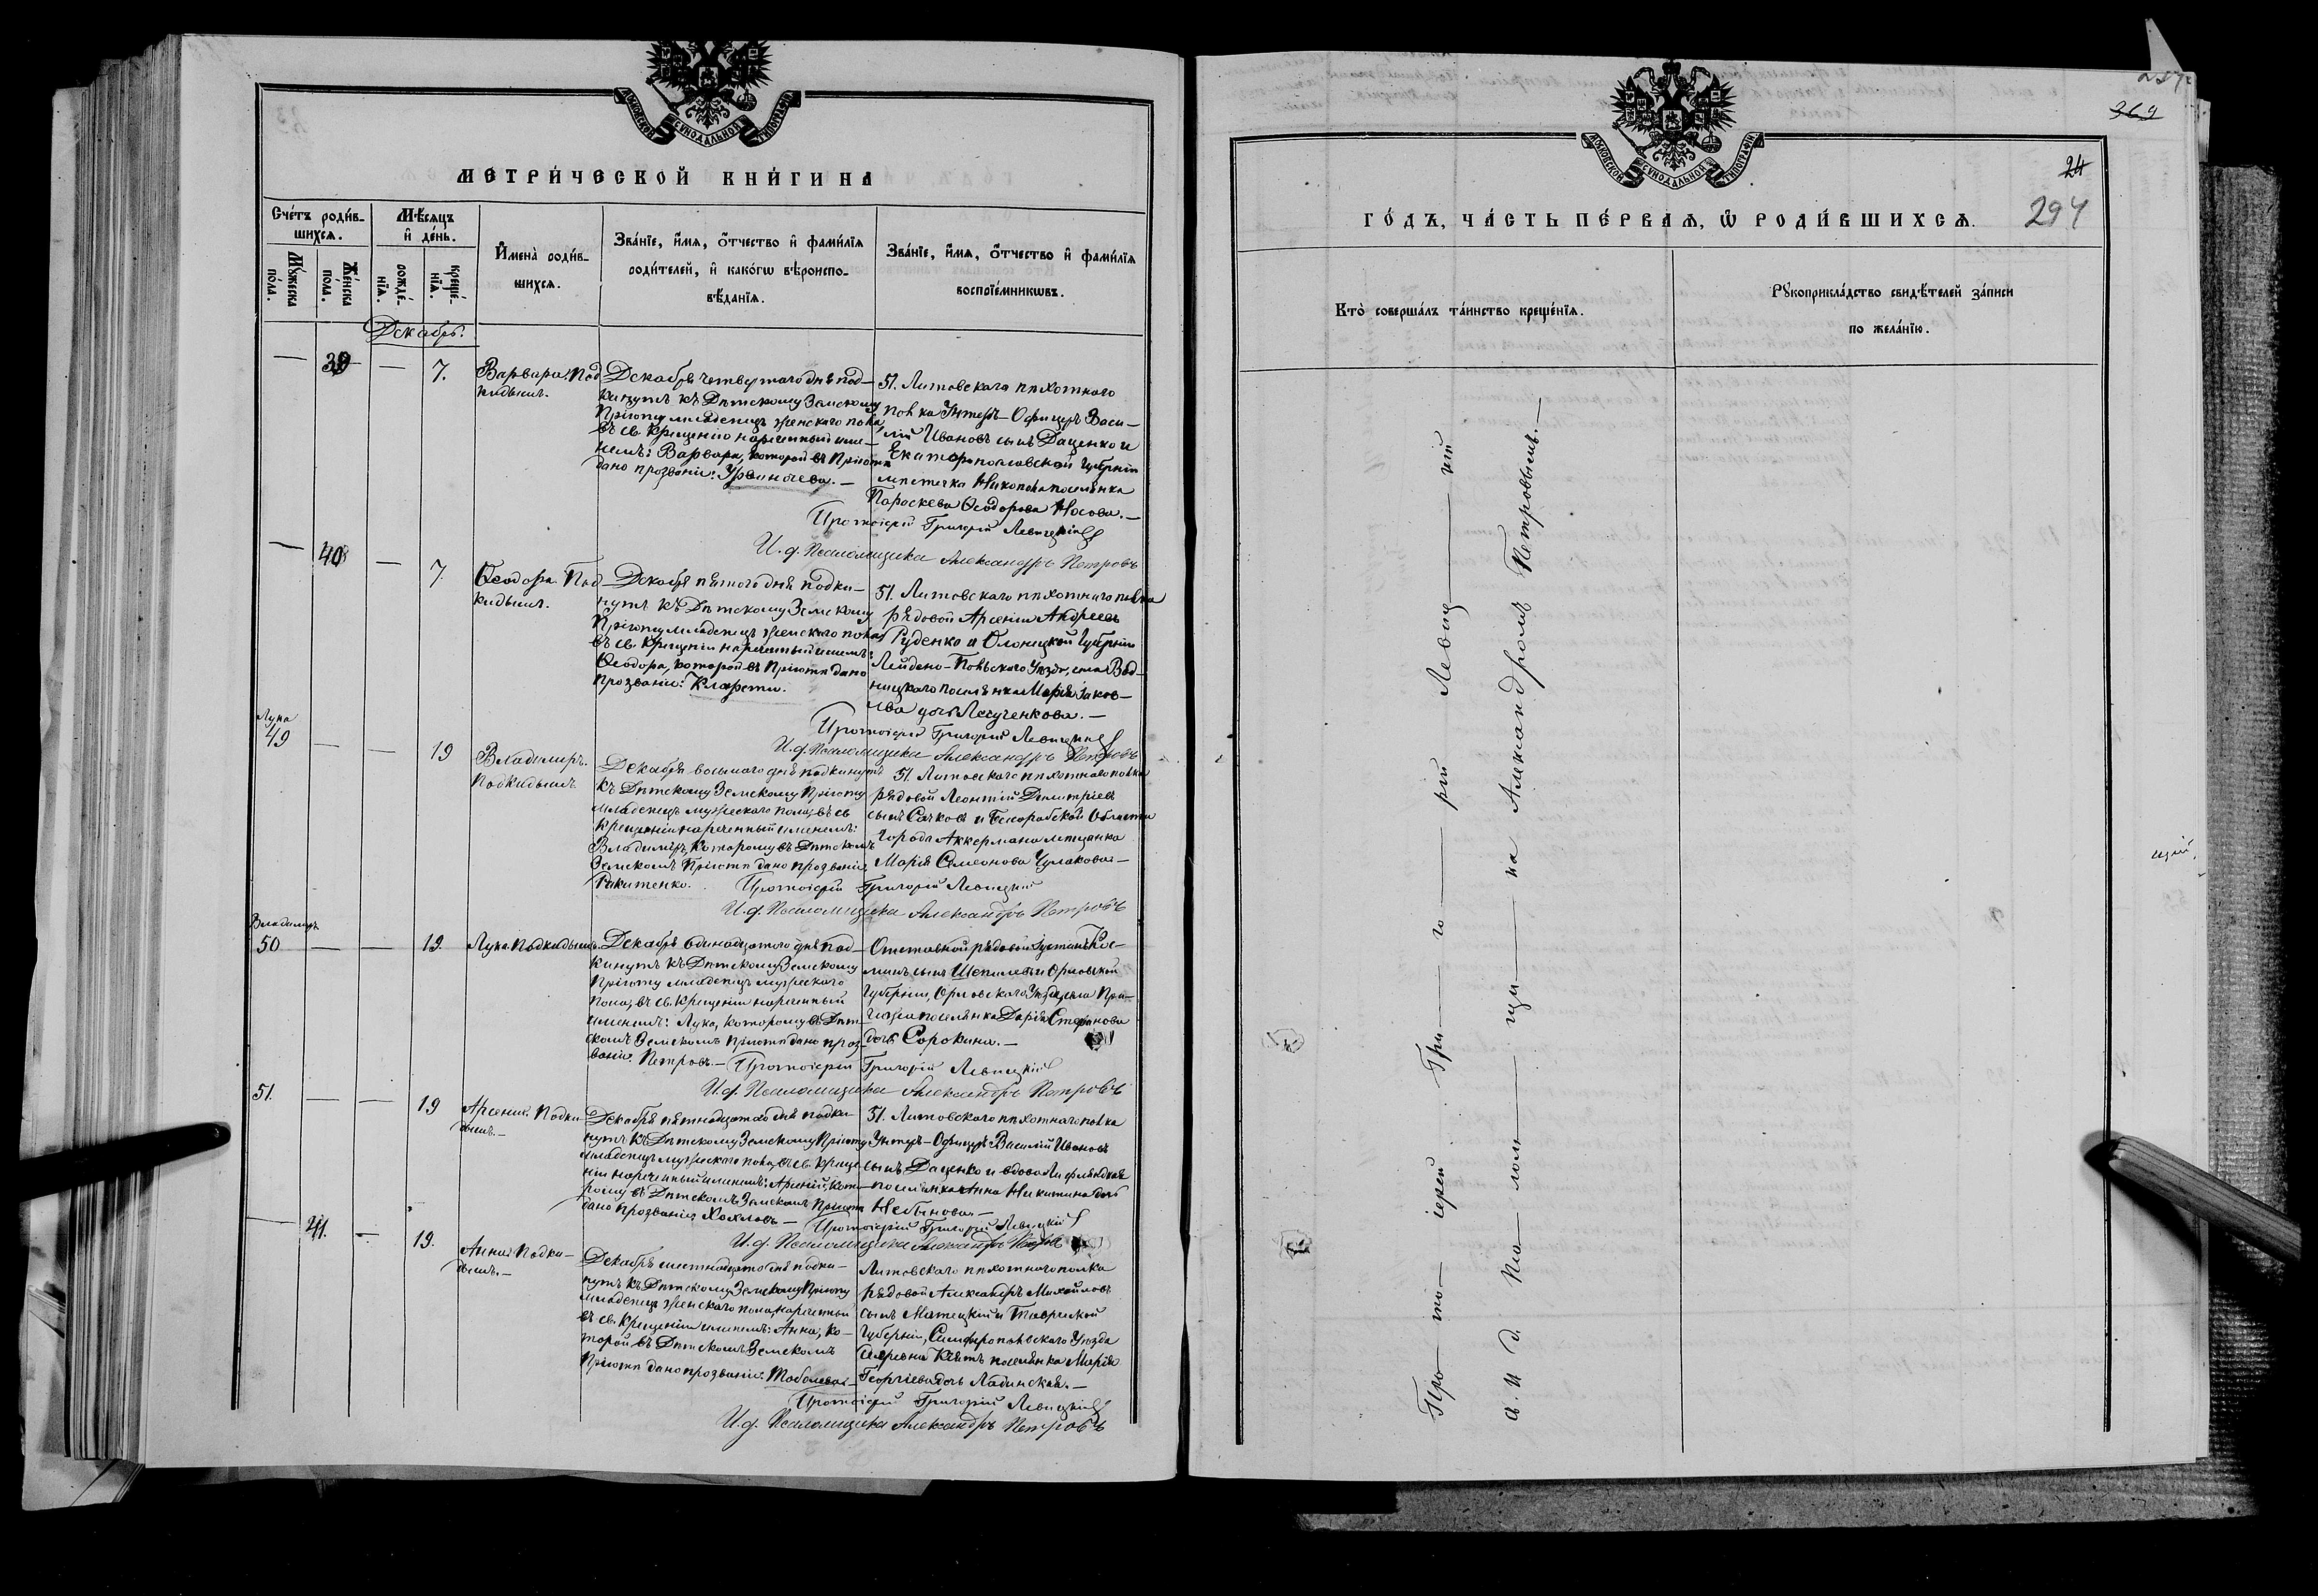 МОСКОВСКОЙ СѴНОДАЛЬНОЙ ТИПОГРАФІИ
МЕТРИ́ЧЕСКОЙ КНИ́ГИ НА
Сче́тъ роди́в-
шихся.
Мꙋ́жеска
по́ла.
Же́нска
по́ла.
Мѣ́сяцъ
и҆ де́нь.
рожде́-
нїя.
креще́-
нїя.
И҆мена̀ роди́в-
шихся.
Зва́нїе, и҆́мя, ѻ҆́тчество и҆ фами́лїя
роди́телей, и҆ како́гѡ вѣроиспо-
вѣ́данїя.
Зва́нїе, и҆́мя, ѻ҆́тчество и҆ фами́лїя
воспрїе́мникѡвъ.
Декабрь.
— 39 — 7.
Варвара. Под
кидышъ.
Декабря четвертаго дня под-
кинутъ къ Дѣтскому Земскому
Пріюту младенецъ женскаго пола,
въ св. крещеніи нареченный име-
немъ: Варвара, которой въ Пріютѣ
дано прозваніе:
51. Литовскаго пѣхотнаго
полка Унтеръ-Офицеръ Васи-
лій Ивановъ сынъ Даценко и
Екатеринославской Губерніи
мѣстечка Никополя поселянка
Параскева Ѳеодорова Носова.—
Протоіерей Григорій Левицкій
И. д. Псаломщика Александръ Петровъ
— 40 — 7.
Ѳеодора. Под
кидышъ.
Декабря пятаго дня подки-
нутъ къ Дѣтскому Земскому
Пріюту младенецъ женскаго пола,
въ св. крещеніи нареченный именемъ:
Ѳеодора, которой въ Пріютѣ дано
прозваніе:
51. Литовскаго пѣхотнаго полка
рядовой Арсеній Андреевъ
Руденко и Олонецкой Губерніи
Лейдено-Польскаго Уѣзда, села Вод-
лицкаго поселянка Марія Яков-
лева дочь
Протоіерей Григорій Левицкій
И. д. Псаломщика Александръ Петровъ
Лука
49 — — 19
Владиміръ.
Подкидышъ
Декабря восьмаго дня подкинутъ
къ Дѣтскому Земскому Пріюту
младенецъ мужескаго пола, въ св
крещеніи нареченный именемъ:
Владиміръ, которому въ Дѣтскомъ
Земскомъ Пріютѣ дано прозваніе
Ракитенко.
51. Литовскаго пѣхотнаго полка
рядовой Леонтій Димитріевъ
сынъ Сачковъ и Бесарабской Области
города Аккермана мѣщанка
Марія Семеонова Чулакова—
Протоіерей Григорій Левицкій
И. д. Псаломщика Александръ Петровъ
Владиміръ
50 — — 19.
Лука. Подкидышъ.
Декабря одинадцатаго дня под-
кинутъ къ Дѣтскому Земскому
Пріюту младенецъ мужескаго
пола, въ св. крещеніи нареченный
именемъ: Лука, которому въ Дѣт-
скомъ Земскомъ Пріютѣ дано проз-
ваніе Петровъ.—
Отставной рядовой Іустинъ Кос-
минъ сынъ Шепилевъ и Орловской
Губерніи, Орловскаго Уѣзда, села
поселянка Дарія Стефанова
дочь Сорокина.—
Протоіерей Григорій Левицкій
И. д. Псаломщика Александръ Петровъ
51. — — 19
Арсеній. Подки-
дышъ.—
Декабря пятнадцатаго дня подки-
нутъ къ Дѣтскому Земскому Пріюту
младенецъ мужескаго пола, въ св. креще-
ніи нареченный именемъ: Арсеній, кото-
рому въ Дѣтскомъ Земскомъ Пріютѣ
дано прозваніе Хохловъ—
51. Литовскаго пѣхотнаго полка
Унтеръ-Офицеръ Василій Ивановъ
сынъ Даценко и вдова Лифляндская
поселянка Анна Никитина дочь
Протоіерей Григорій Левицкій
И. д. Псаломщика Александръ Петровъ
— 41. — 19.
Анна. Подки-
дышъ.—
Декабря шестнадцатаго дня подки-
нутъ къ Дѣтскому Земскому Пріюту
младенецъ женскаго пола, нареченный
въ св. крещеніи именемъ: Анна, ко-
торой въ Дѣтскомъ Земскомъ
Пріютѣ дано прозваніе:
Литовскаго пѣхотнаго полка
рядовой Александръ Михайловъ
сынъ Матецкій и Таврической
Губерніи, Симферопольскаго Уѣзда
деревни поселянка Марія
Георгіева дочь Ладинская.—
Протоіерей Григорій Левицкій
И. д. Псаломщика Александръ Петровъ
МОСКОВСКОЙ СѴНОДАЛЬНОЙ ТИПОГРАФІИ
269
24
294
ГО́ДЪ, ЧА́СТЬ ПЕ́РВАЯ, Ѡ҆ РОДИ́ВШИХСЯ.
Кто̀ соверша́лъ та́инство креще́нїя.
Рꙋкоприкла́дство свидѣ́телей за́писи
по жела́нїю.
Про— то— іерей Гри— го— рій Левиц— кій
а. И. д. Пса— лом— щи— ка Александромъ Петровымъ.—